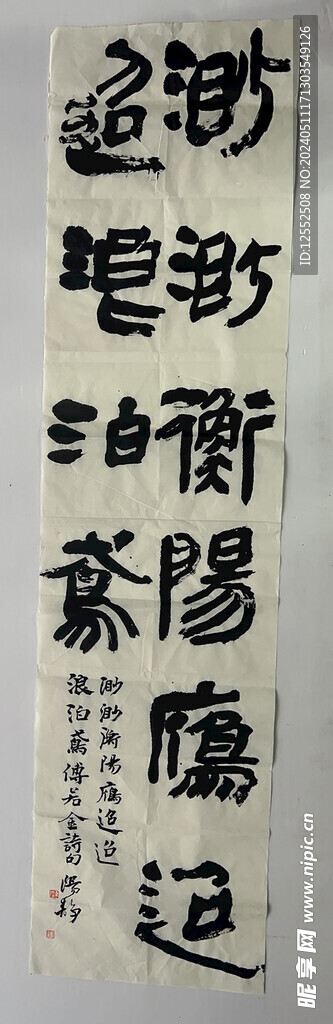 渺渺衡陽鴈迢
迢浪泊鳶
渺渺衡陽鴈迢迢
浪泊鳶傅若金詩句
ID:12552508 NO:20240511171303549126
昵享网 www.nipic.cn